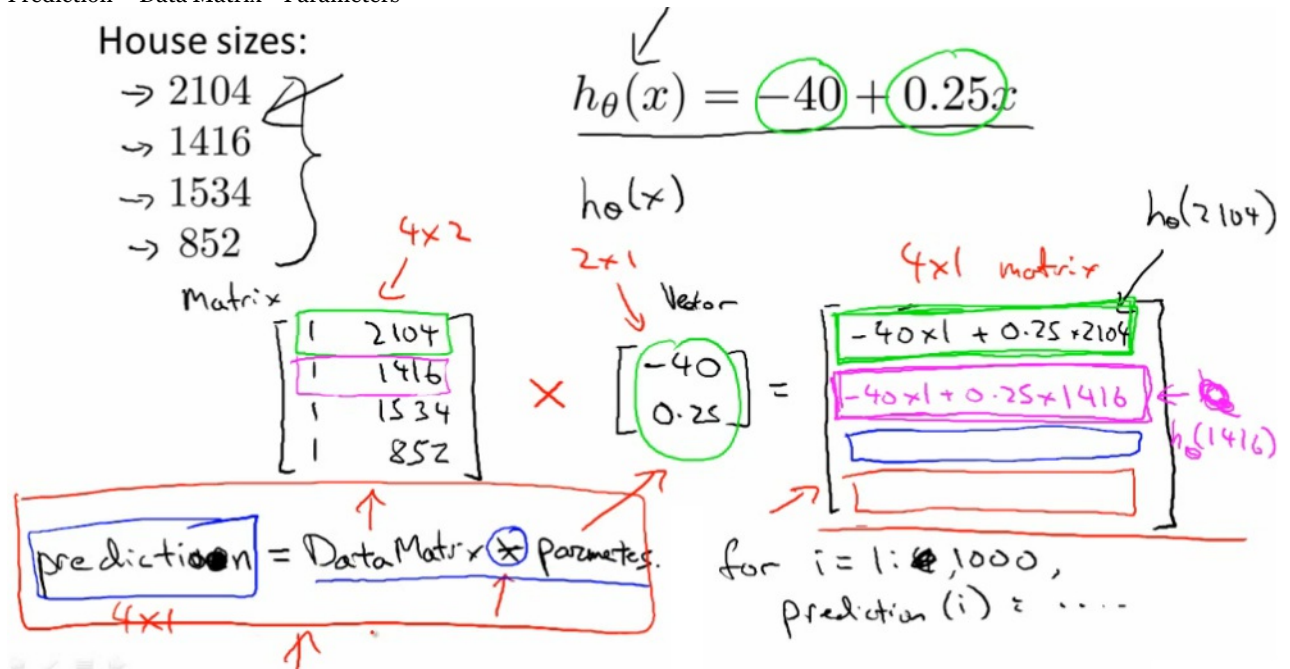 House sizes:
→ 2104
→ 1416
→ 1534
→ 852
hθ(x) = −40 + 0.25x
hθ(x)
hθ(2104)
4×2
2×1
4×1 matrix
Matrix
Vector
1 2104
1 1416
1 1534
1 852
×
-40
0.25
=
-40×1 + 0.25×2104
-40×1 + 0.25×1416
hθ(1416)
prediction = DataMatrix * parametes.
4×1
for i = 1: 1000,
prediction(i) = ....